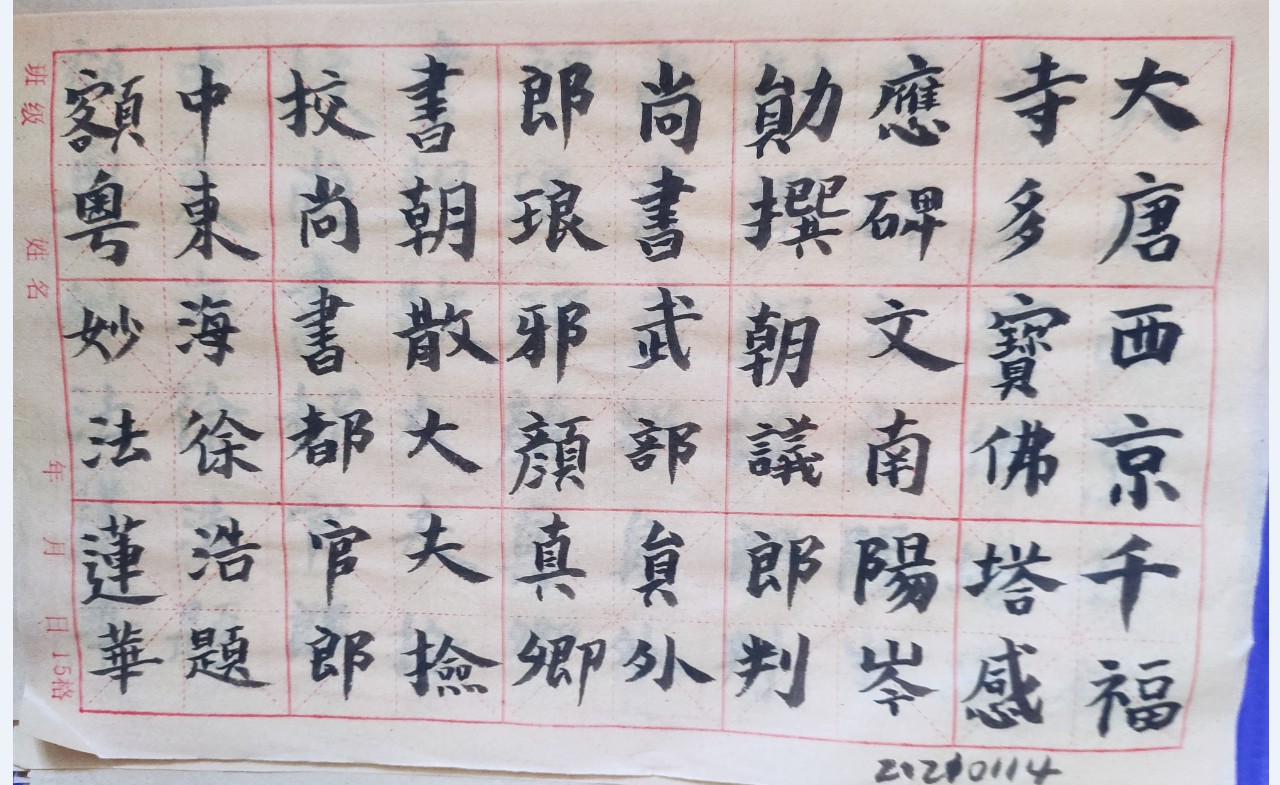 大唐西京千福
寺多寶佛塔感
應碑文南陽岑
勛撰朝議郎判
尚書武部員外
郎琅邪顏真卿
書朝散大夫撿
挍尚書都官郎
中東海徐浩題
額粵妙法蓮華
班级 姓名 年 月 日 15格
20210114